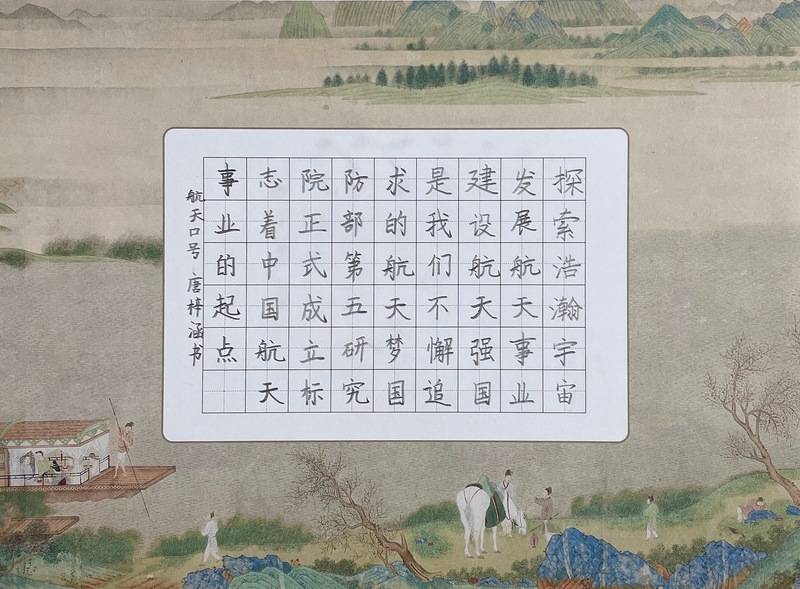 探索浩瀚宇宙
发展航天事业
建设航天强国
是我们不懈追
求的航天梦国
防部第五研究
院正式成立标
志着中国航天
事业的起点
航天口号 唐梓涵书